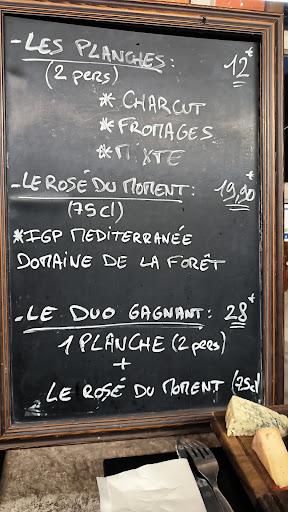 - LES PLANCHES : 12€
(2 pers)
* CHARCUT
* FROMAGES
* MIXTE
- LE ROSÉ DU MOMENT : 19,90€
(75cl)
*IGP MEDITERRANÉE
DOMAINE DE LA FORÊT
- LE DUO GAGNANT : 28€
1 PLANCHE (2 pers)
+
LE ROSÉ DU MOMENT (75cl